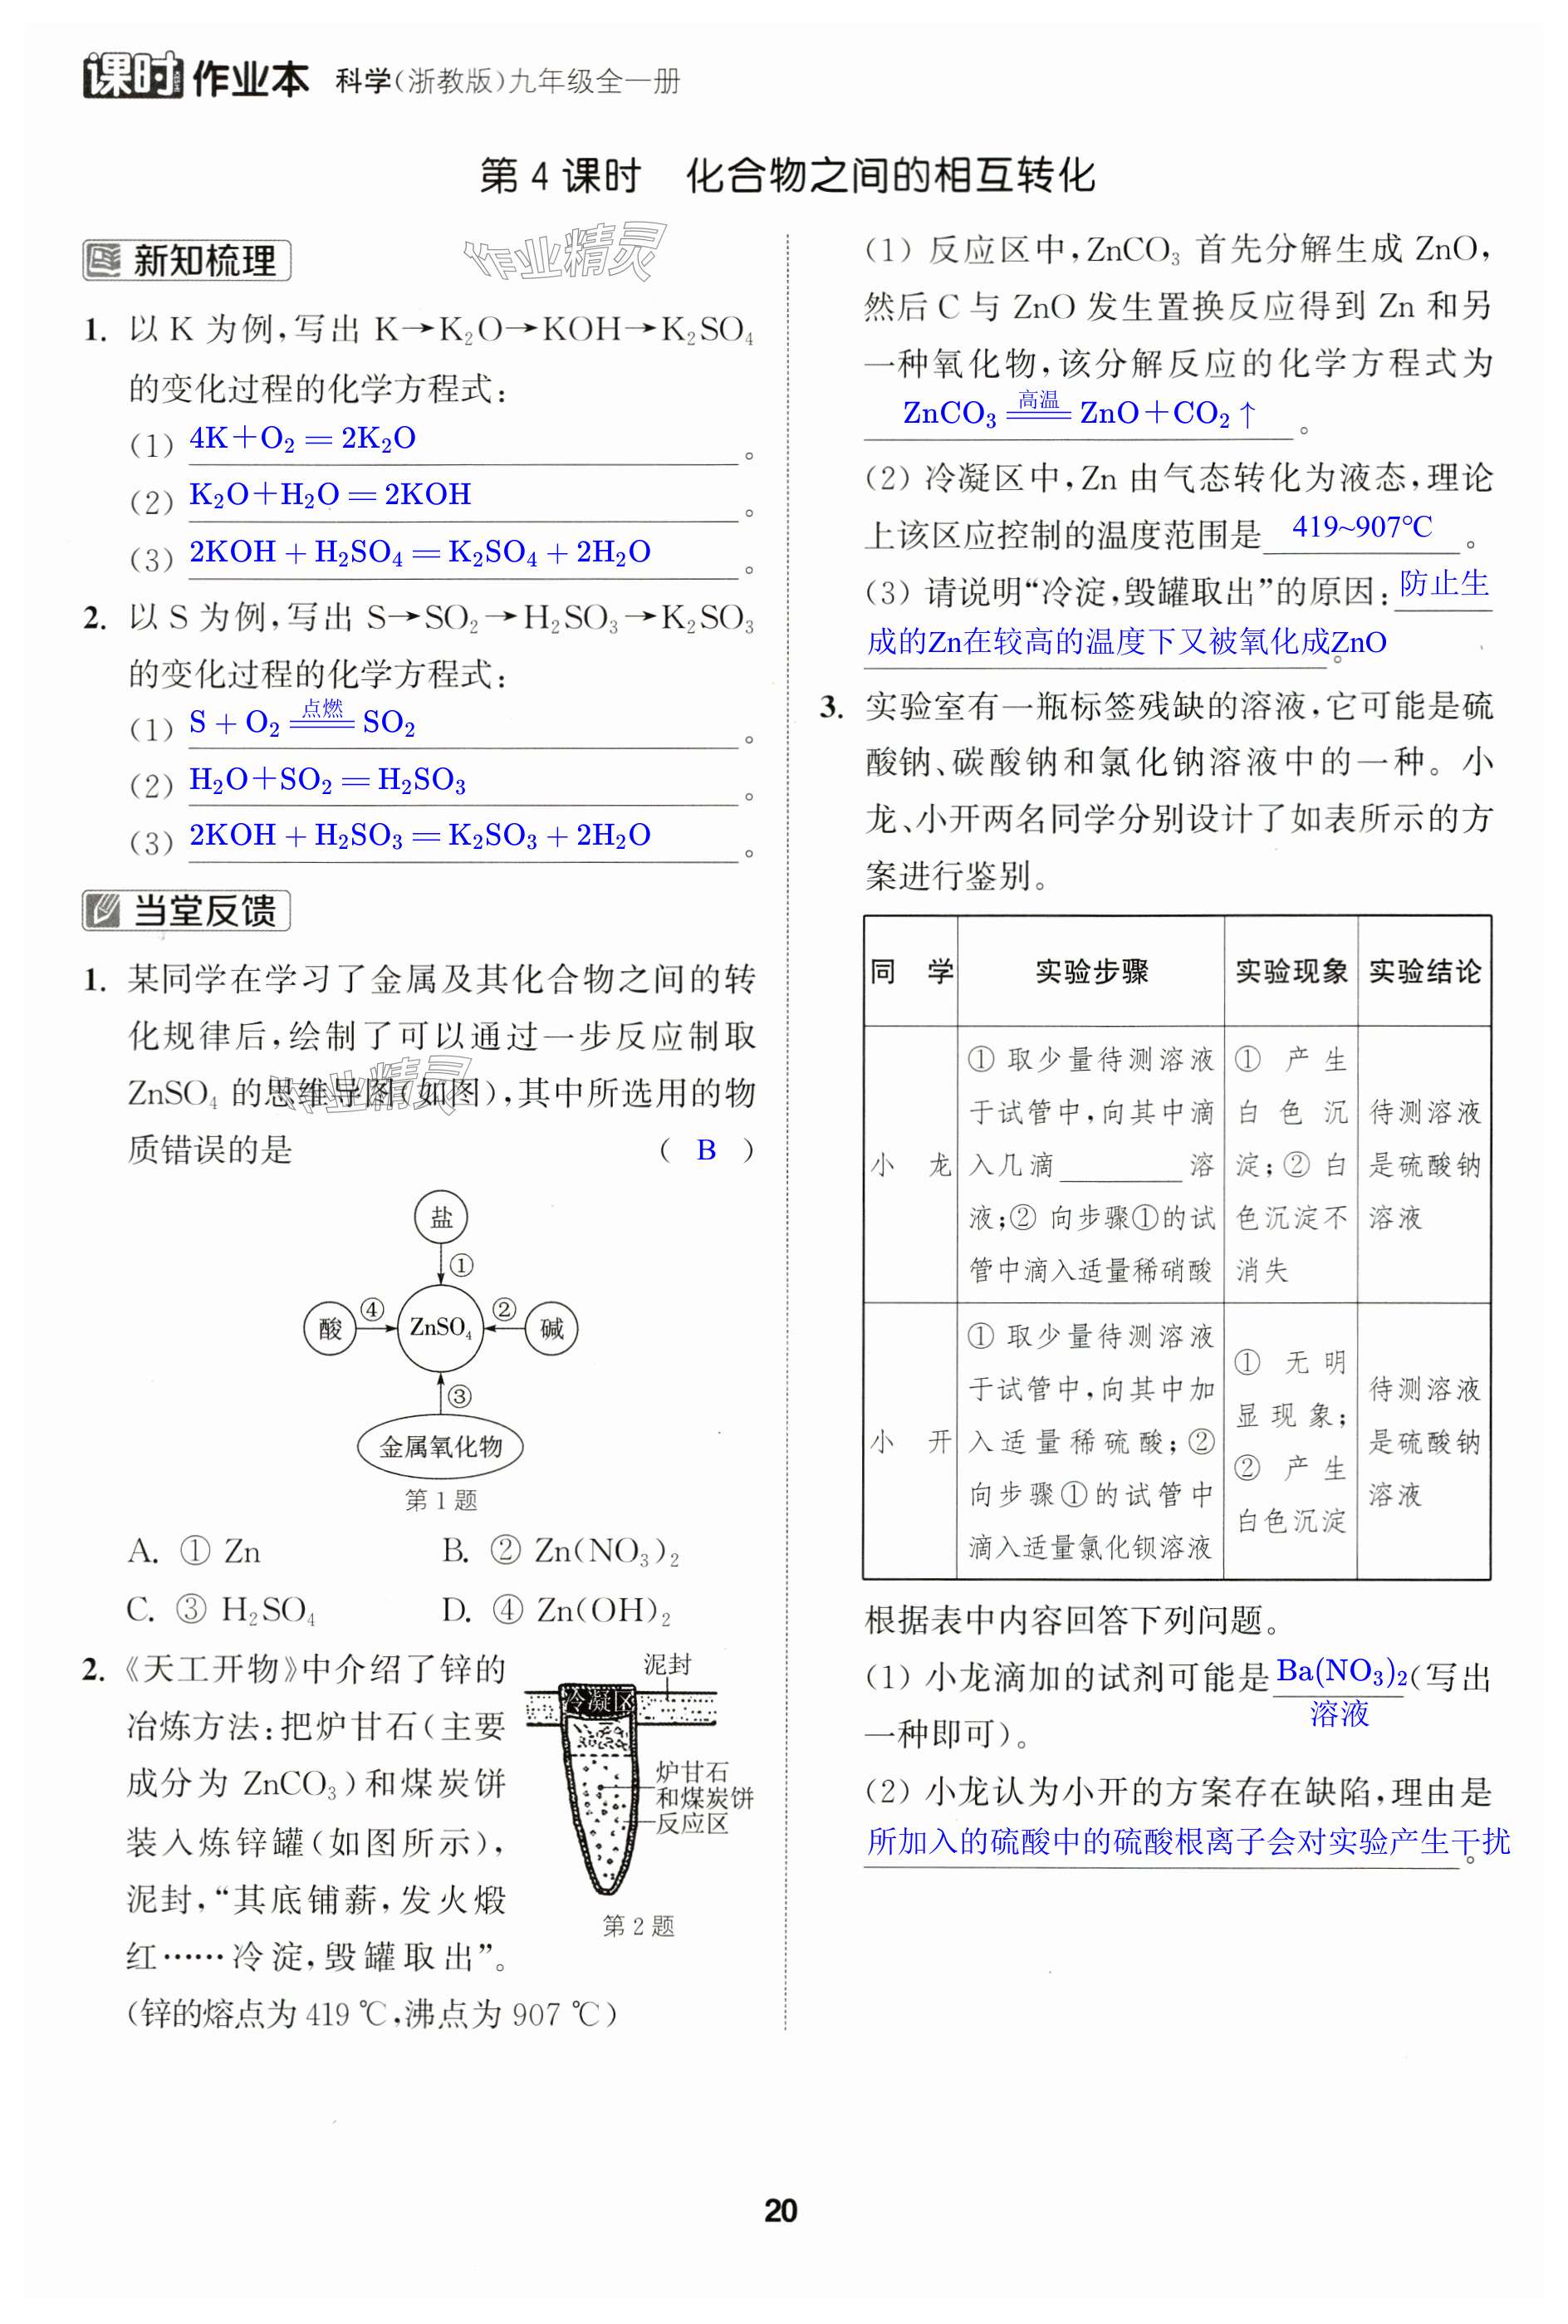 课时作业本 科学(浙教版)九年级全一册
第 4 课时 化合物之间的相互转化
新知梳理
作业精灵
1. 以 K 为例,写出 K→K₂O→KOH→K₂SO₄
的变化过程的化学方程式:
(1) 4K+O₂=2K₂O 。
(2) K₂O+H₂O=2KOH 。
(3) 2KOH+H₂SO₄=K₂SO₄+2H₂O 。
2. 以 S 为例,写出 S→SO₂→H₂SO₃→K₂SO₃
的变化过程的化学方程式:
(1) S+O₂ 点燃 SO₂ 。
(2) H₂O+SO₂=H₂SO₃ 。
(3) 2KOH+H₂SO₃=K₂SO₃+2H₂O 。
当堂反馈
1. 某同学在学习了金属及其化合物之间的转
化规律后,绘制了可以通过一步反应制取
ZnSO₄ 的思维导图(如图),其中所选用的物
作业精灵
质错误的是 ( B )
盐
①
酸 ④ ZnSO₄ ② 碱
③
金属氧化物
第 1 题
A. ① Zn B. ② Zn(NO₃)₂
C. ③ H₂SO₄ D. ④ Zn(OH)₂
2. 《天工开物》中介绍了锌的
冶炼方法:把炉甘石(主要
成分为 ZnCO₃)和煤炭饼
装入炼锌罐(如图所示),
泥封,“其底铺薪,发火煅
红……冷淀,毁罐取出”。
(锌的熔点为 419 ℃,沸点为 907 ℃)
泥封
冷凝区
炉甘石
和煤炭饼
反应区
第 2 题
(1) 反应区中,ZnCO₃ 首先分解生成 ZnO,
然后 C 与 ZnO 发生置换反应得到 Zn 和另
一种氧化物,该分解反应的化学方程式为
ZnCO₃ 高温 ZnO+CO₂↑ 。
(2) 冷凝区中,Zn 由气态转化为液态,理论
上该区应控制的温度范围是 419~907℃ 。
(3) 请说明“冷淀,毁罐取出”的原因: 防止生
成的Zn在较高的温度下又被氧化成ZnO 。
3. 实验室有一瓶标签残缺的溶液,它可能是硫
酸钠、碳酸钠和氯化钠溶液中的一种。小
龙、小开两名同学分别设计了如表所示的方
案进行鉴别。
同 学 实验步骤 实验现象 实验结论
① 取少量待测溶液 ① 产生
于试管中,向其中滴 白色沉 待测溶液
小 龙 入几滴________溶 淀;② 白 是硫酸钠
液;② 向步骤①的试 色沉淀不 溶液
管中滴入适量稀硝酸 消失
① 取少量待测溶液 ① 无明
于试管中,向其中加 显现象; 待测溶液
小 开 入适量稀硫酸;② ② 产生 是硫酸钠
向步骤①的试管中 白色沉淀 溶液
滴入适量氯化钡溶液
根据表中内容回答下列问题。
(1) 小龙滴加的试剂可能是 Ba(NO₃)₂ (写出
溶液
一种即可)。
(2) 小龙认为小开的方案存在缺陷,理由是
所加入的硫酸中的硫酸根离子会对实验产生干扰 。
20